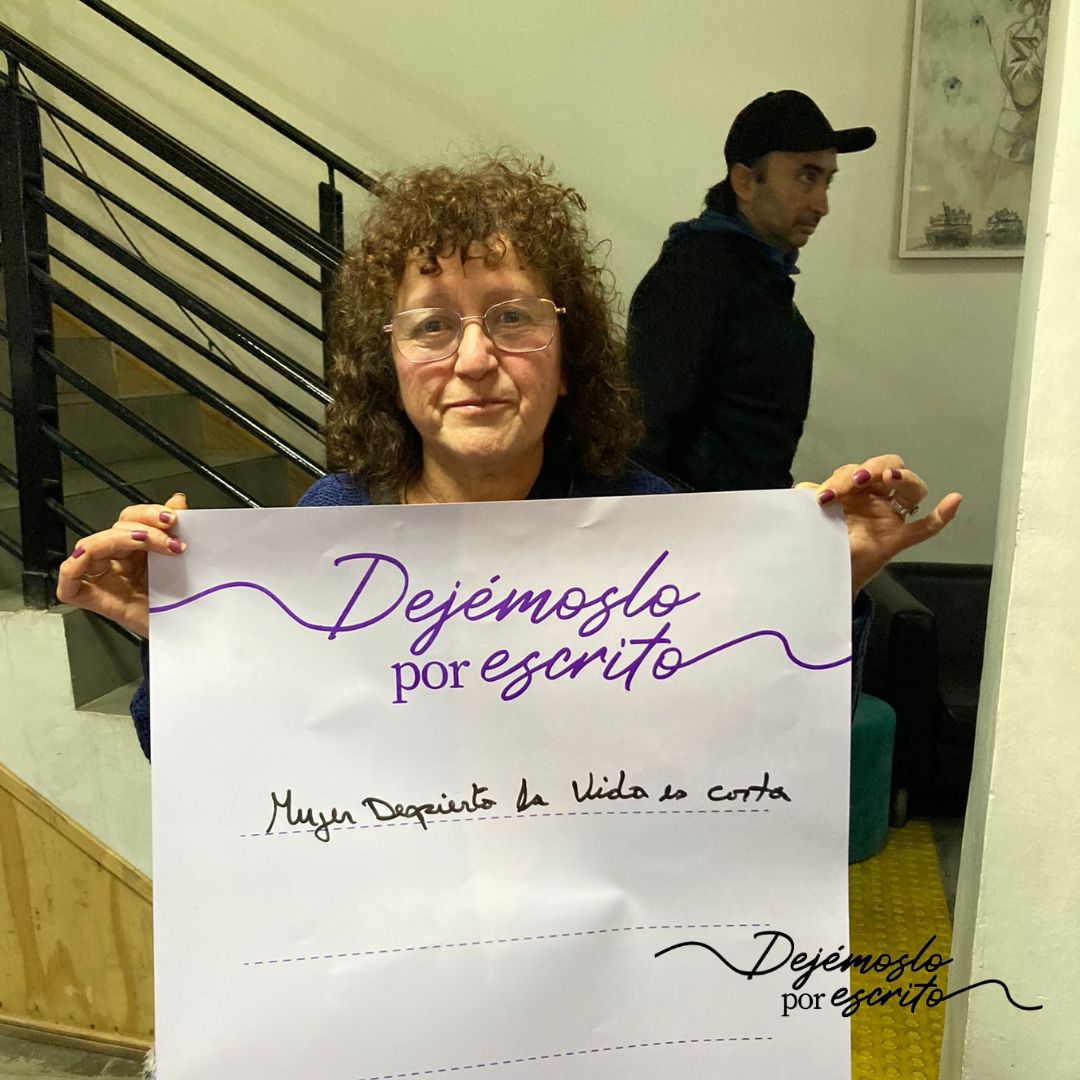 Dejémoslo
por escrito
Mujer Despierta la Vida es corta
Dejémoslo
por escrito